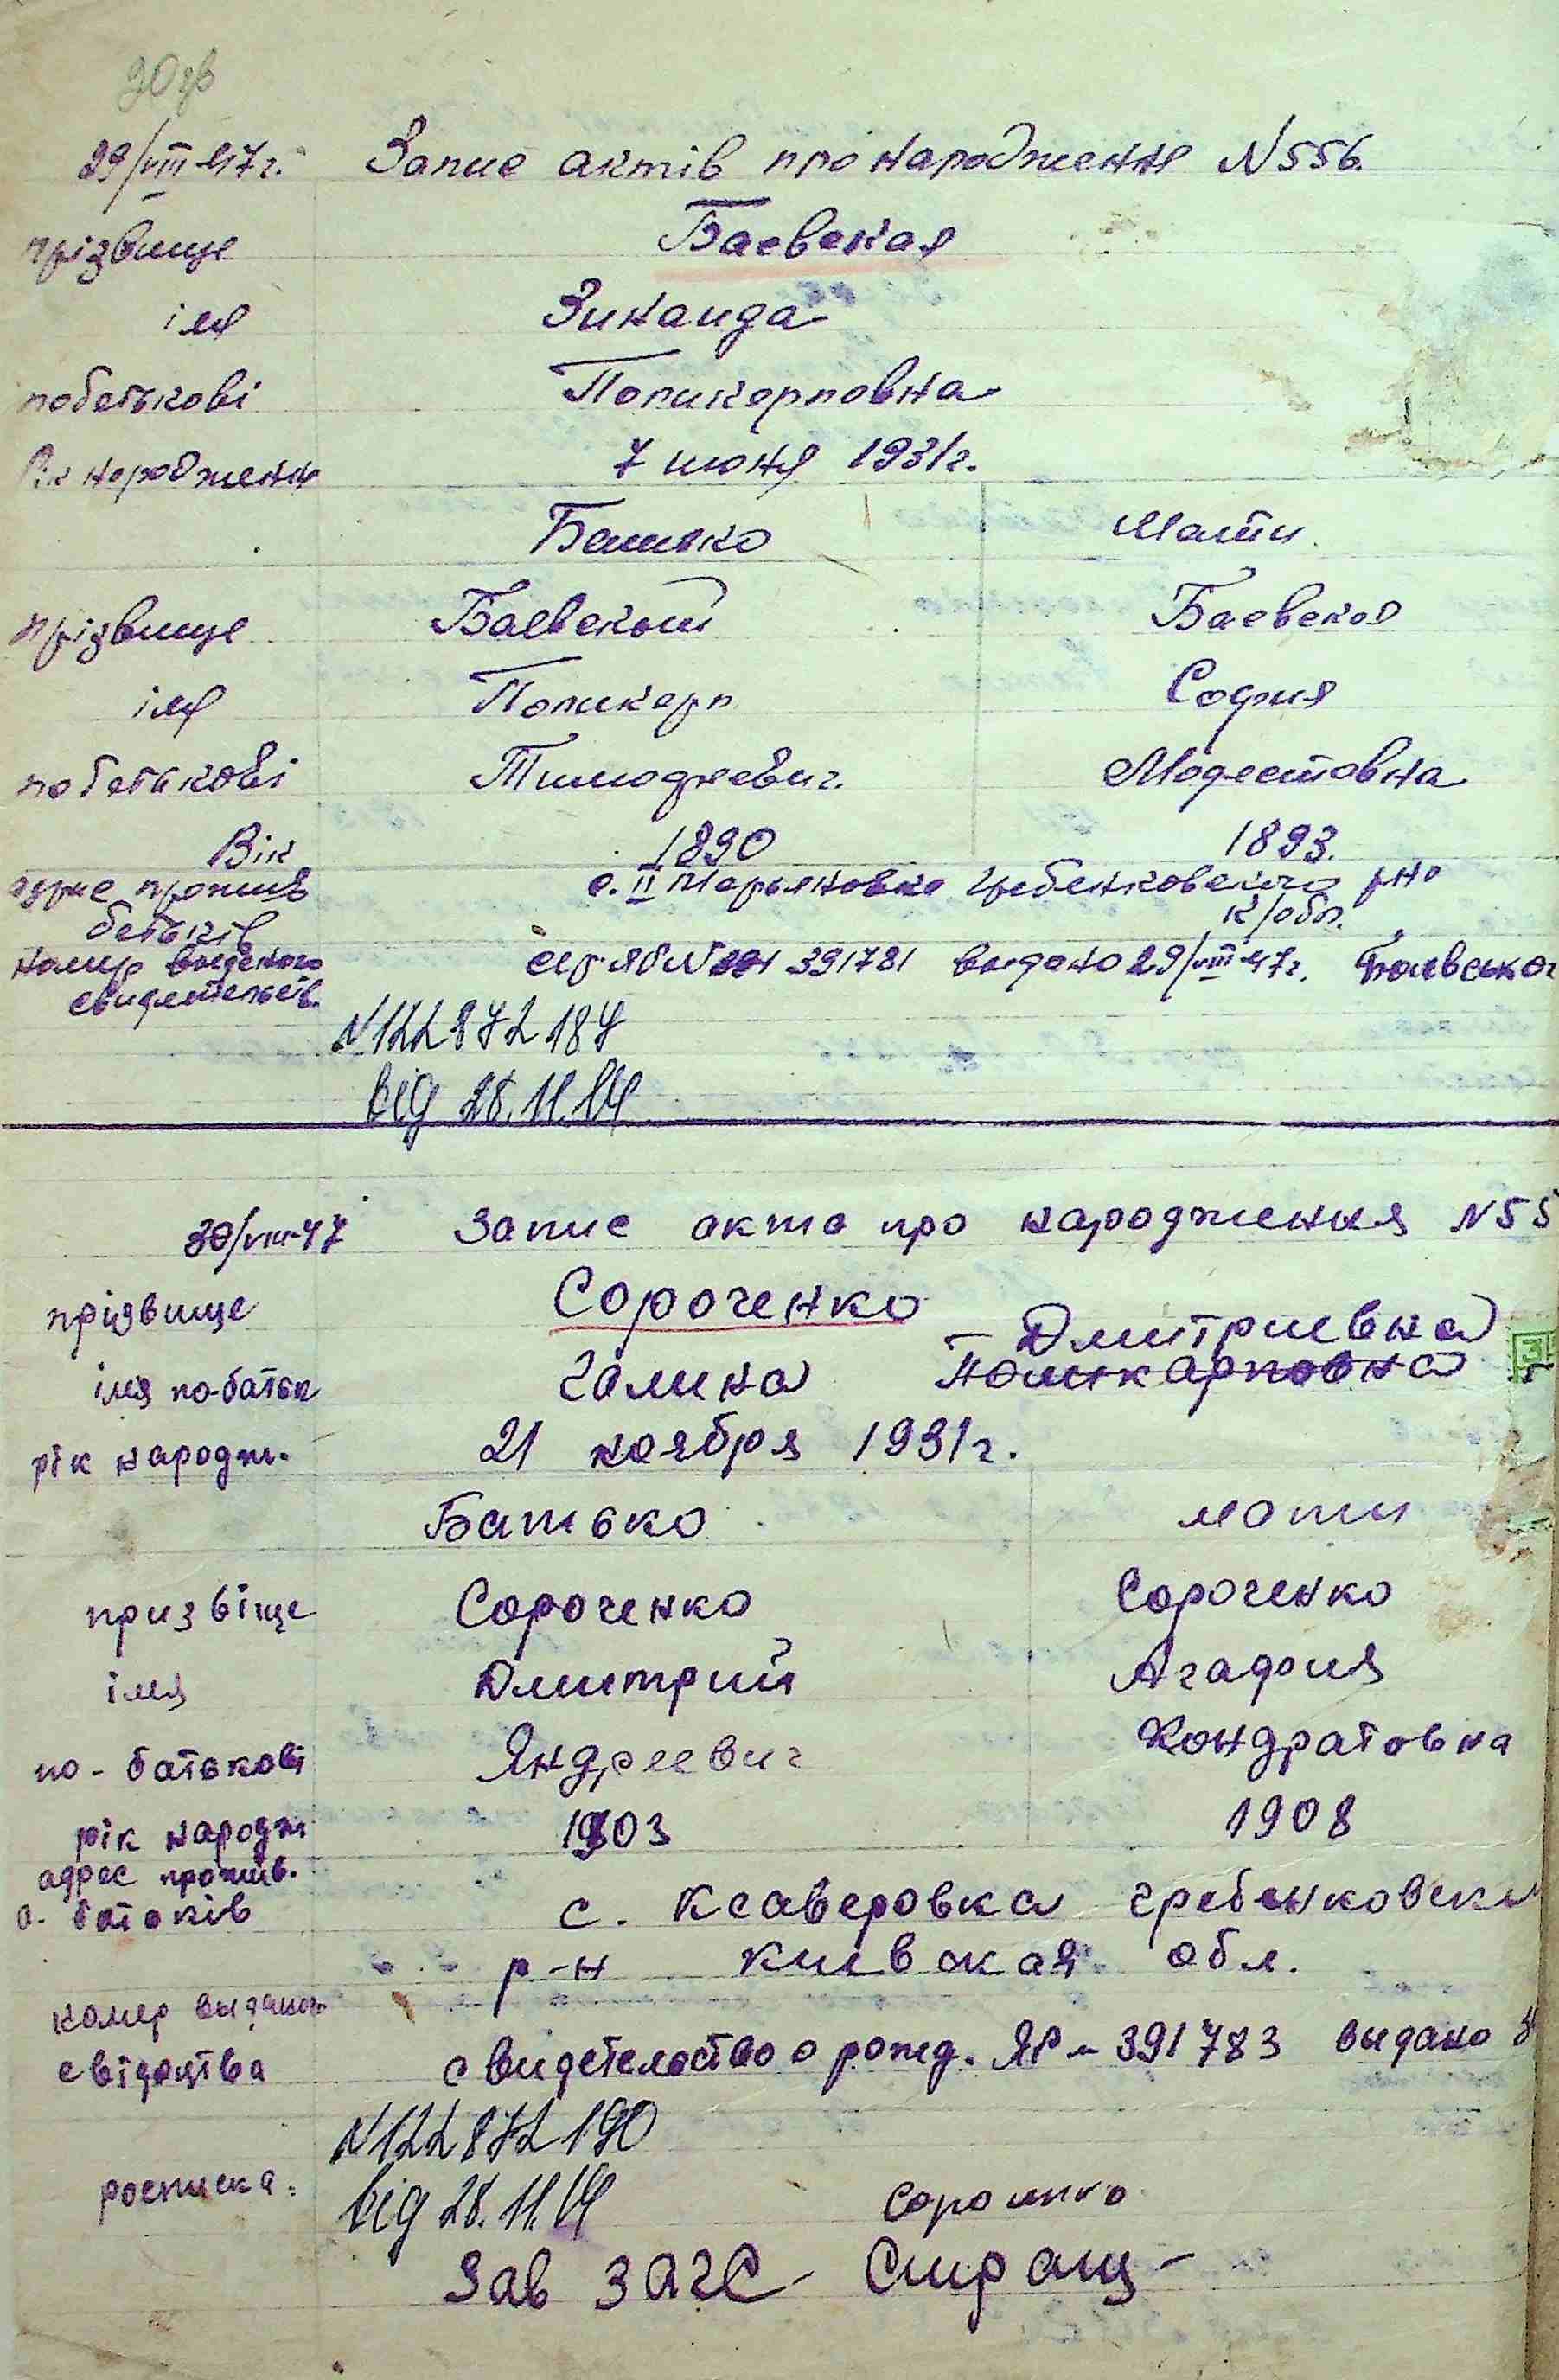 29/VIII-47г. Запис актів про народження N556.
прізвище Баевская
імя Зинаида
побатькові Поликарповна
Рік народження 7 июня 1931г.
Батько Мати
прізвище Баевский Баевская
імя Поликарп София
побатькові Тимофеевич. Модестовна
Вік 1890 1893.
адрес прожив с. II Марьяновка Гребенковского р-но
батьків К/обл.
номир выданого N 391781 выдано 29/VIII-47г.
свидетельств.
N122872187
від 28.11.14
30/VIII-47 Запис акта про народження N55
прізвище Сороченко
– Дмитриевна
імя по-батьк Галина Поликарповна
рік народж. 21 ноября 1931г.
Батько мати
призвіще Сороченко Сороченко
імя Дмитрий Агафия
по-батькові Яндреевич Кондратовна
рік народж 1903 1908
адрес прожив.
о. батьків с. Ксаверовка Гребенковски
р-н Киевская обл.
номер выданог
свідоцтва свидетельство о рожд. ЯР – 391783 выдано
N122872190
росписка: від 28.11.14
Зав ЗАГС –